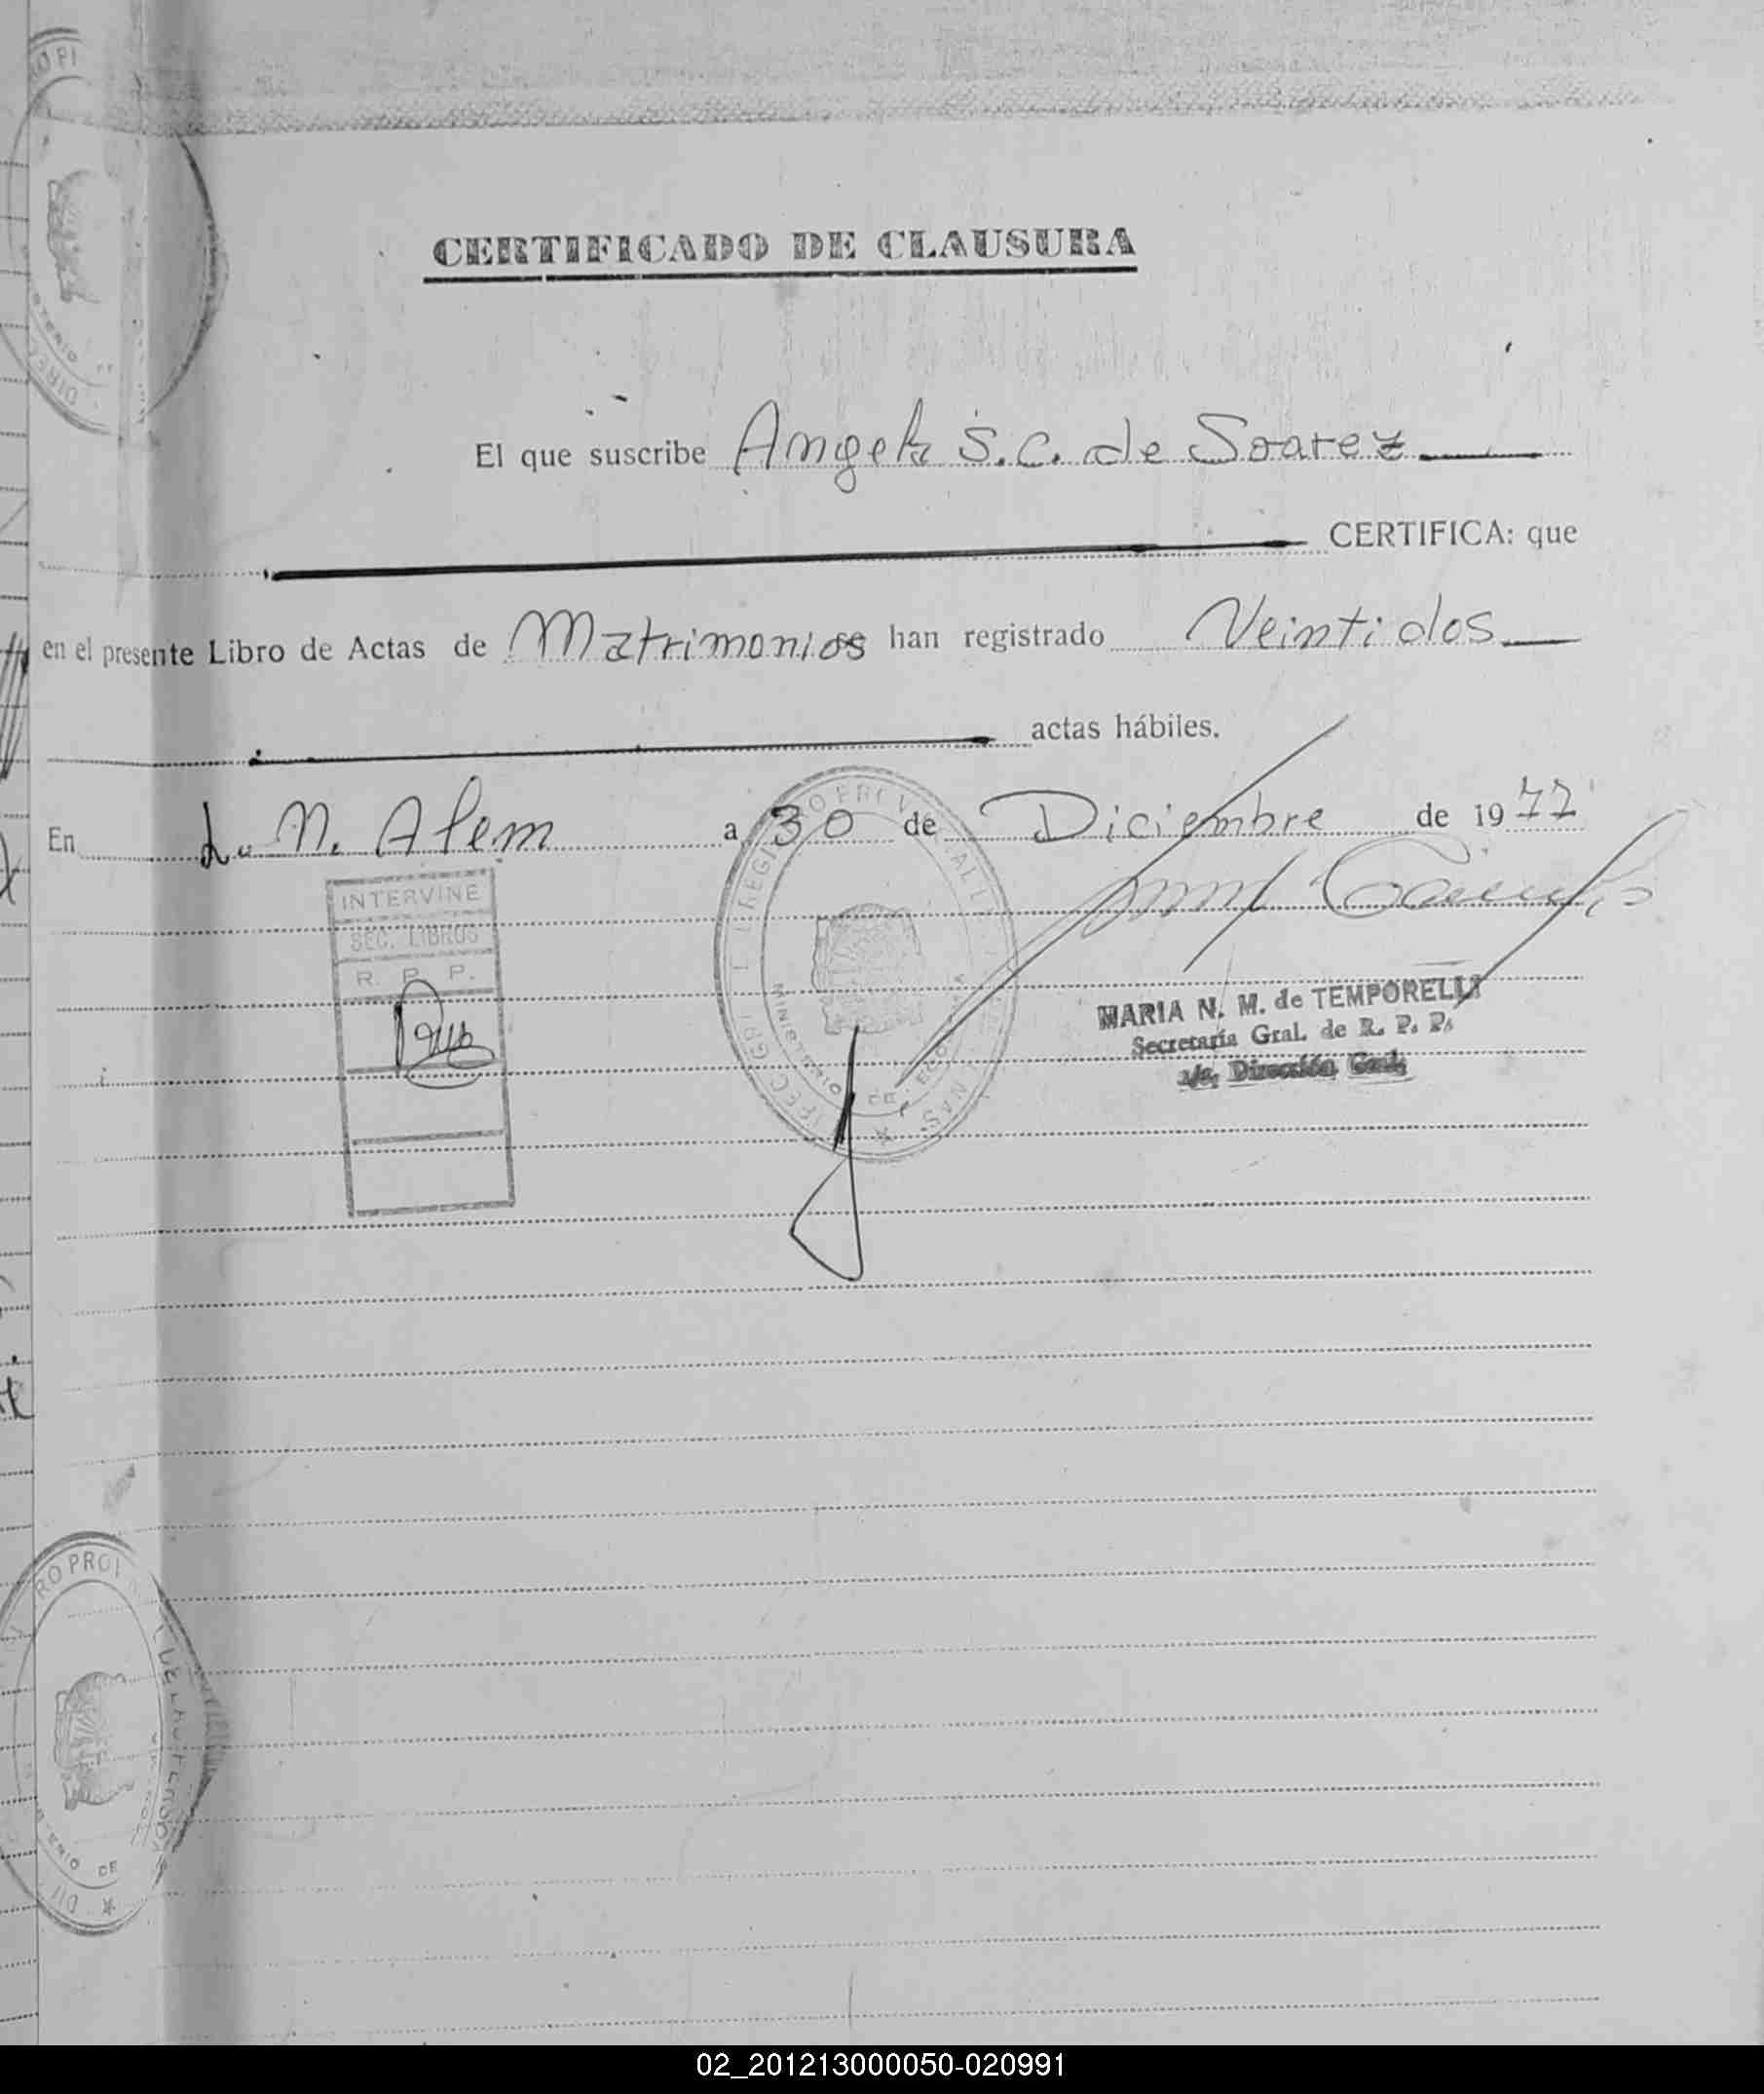 CERTIFICADO DE CLAUSURA
El que suscribe Angela S. C. de Soarez
CERTIFICA: que
en el presente Libro de Actas de Matrimonios han registrado Veintidos
actas hábiles.
En L. N. Alem a 30 de Diciembre de 1977
INTERVINE
SEC. LIBROS
R. P. P.
MARIA N. M. de TEMPORELLI
Secretaria Gral. de R. P. P.
a/c. Dirección Gral.
02_201213000050-020991